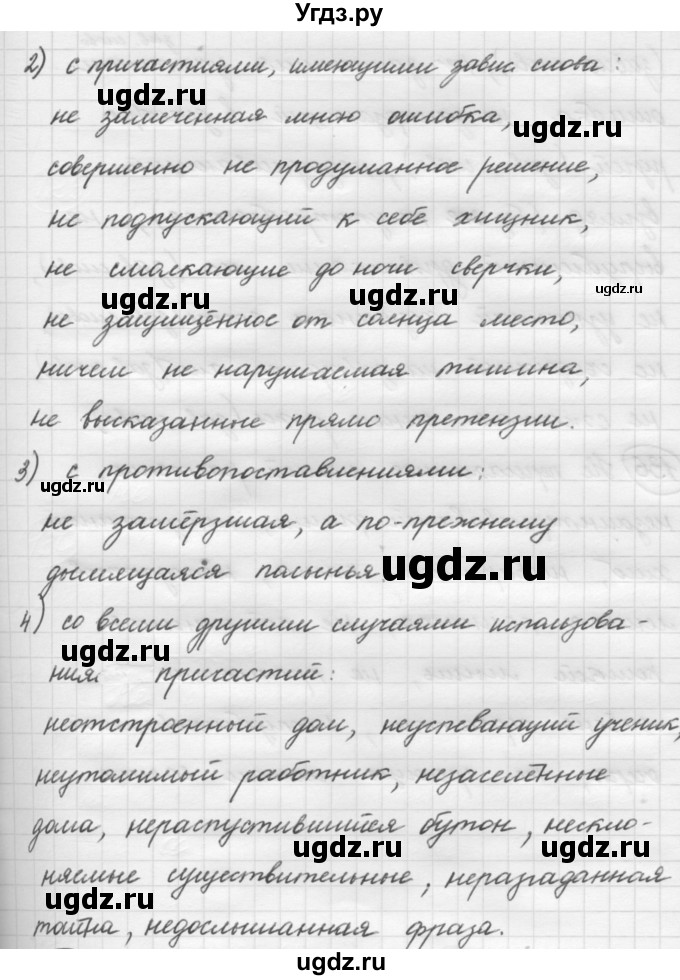 Угдз.ру
2) с причастиями, имеющими завис. слова:
ugdz.ru
не замеченная мною ошибка,
ugdz.ru
совершенно не продуманное решение,
не подпускающий к себе хищник,
не смолкающие до ночи сверчки,
ugdz.ru ugdz.ru ugdz.ru
не защищённое от солнца место,
ничем не нарушаемая тишина,
не высказанные прямо претензии.
3) с противопоставлениями:
ugdz.ru
не замёрзшая, а по-прежнему
дымящаяся полынья.
ugdz.ru
4) со всеми другими случаями использова-
ugdz.ru
ния причастий:
неотстроенный дом, неуспевающий ученик,
ugdz.ru
неутомимый работник, незаселённые
дома, нераспустившийся бутон, нескло-
ugdz.ru ugdz.ru
няемые существительные, неразгаданная
ugdz.ru
тайна, недослышанная фраза.
ugdz.ru